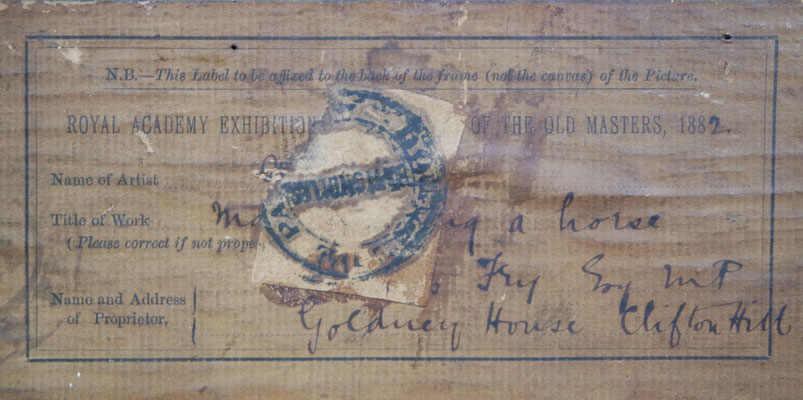 N.B.—This Label to be affixed to the back of the frame (not the canvas) of the Picture.
ROYAL ACADEMY EXHIBITION OF THE OLD MASTERS, 1882.
Name of Artist
Title of Work a horse
(Please correct if not prope
Name and Address of Proprietor.
Fry Esq MP
Goldney House Clifton Hill